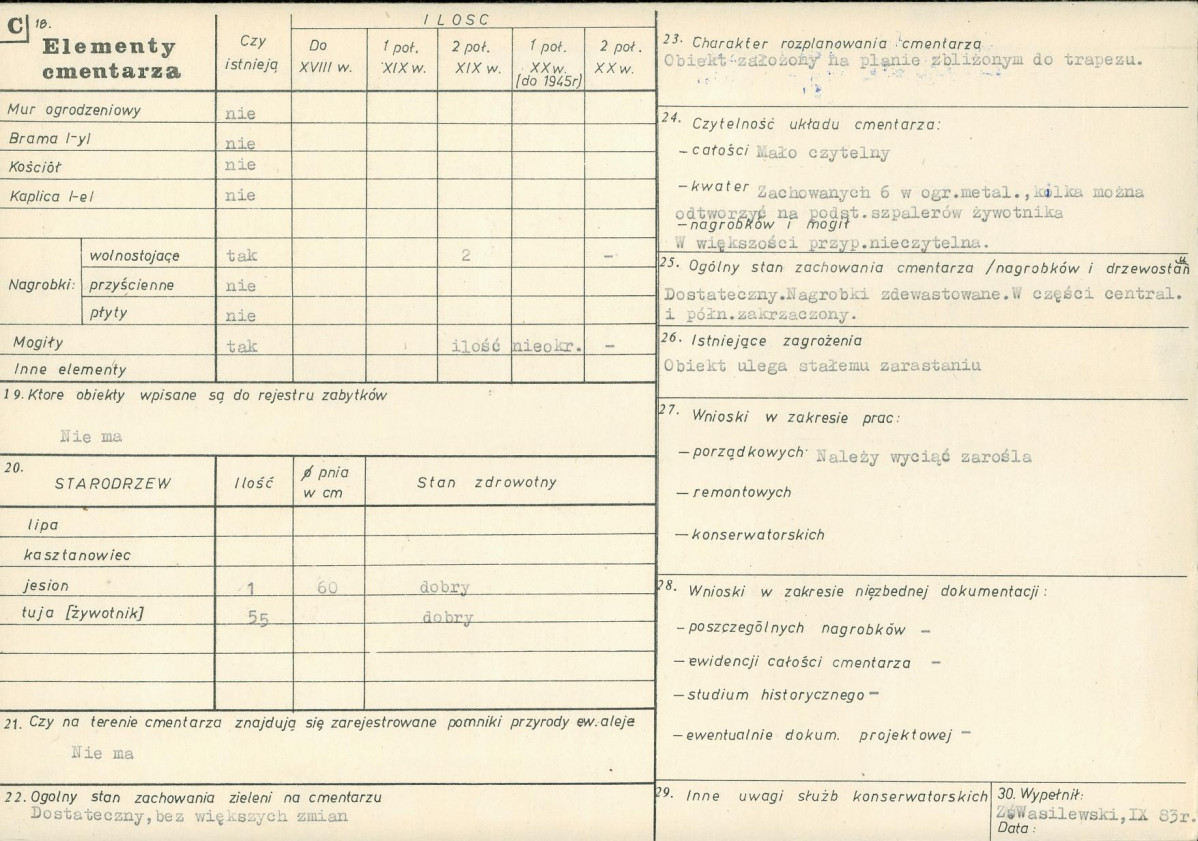 C 18.
Elementy cmentarza
Czy istnieją
ILOSC
Do XVIII w.
1 poł. XIX w.
2 poł. XIX w.
1 poł. XX w. [do 1945r]
2 poł. XX w.
Mur ogrodzeniowy nie
Brama /-y/ nie
Kościół nie
Kaplica /-e/ nie
Nagrobki:
wolnostojące tak 2 -
przyścienne nie
płyty nie
Mogiły tak ilość nieokr. -
Inne elementy
19. Ktore obiekty wpisane są do rejestru zabytków
Nie ma
20. STARODRZEW Ilość ø pnia w cm Stan zdrowotny
lipa
kasztanowiec
jesion 1 60 dobry
tuja [żywotnik] 55 dobry
21. Czy na terenie cmentarza znajdują się zarejestrowane pomniki przyrody ew. aleje
Nie ma
22. Ogolny stan zachowania zieleni na cmentarzu
Dostateczny, bez większych zmian
23. Charakter rozplanowania cmentarza
Obiekt założony na planie zbliżonym do trapezu.
24. Czytelność układu cmentarza:
- całości Mało czytelny
- kwater Zachowanych 6 w ogr.metal., kilka można
odtworzyć na podst.szpalerów żywotnika
- nagrobków i mogił
W większości przyp.nieczytelna.
25. Ogólny stan zachowania cmentarza /nagrobków i drzewostanu
Dostateczny.Nagrobki zdewastowane.W części central.
i półn.zakrzaczony.
26. Istniejące zagrożenia
Obiekt ulega stałemu zarastaniu
27. Wnioski w zakresie prac:
- porządkowych Należy wyciąć zarośla
- remontowych
- konserwatorskich
28. Wnioski w zakresie nięzbednej dokumentacji:
- poszczególnych nagrobków -
- ewidencji całości cmentarza -
- studium historycznego -
- ewentualnie dokum. projektowej -
29. Inne uwagi służb konserwatorskich
30. Wypełnił:
Wasilewski, IX 83r.
Data: